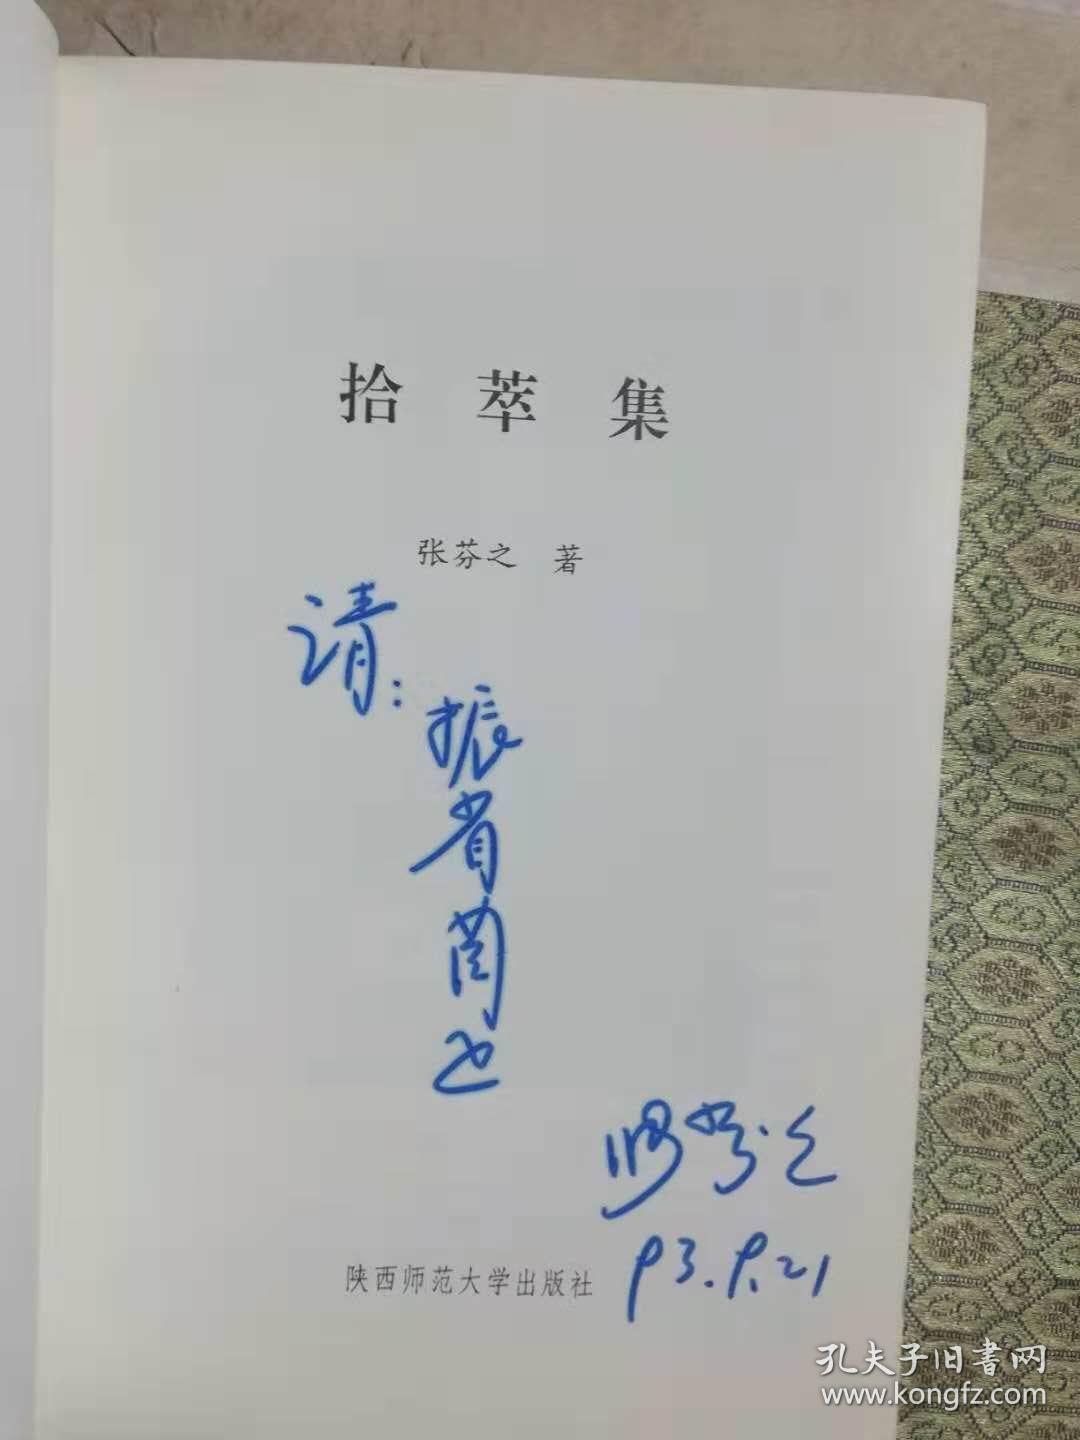 拾萃集
张芬之 著
请：
振省
芬之
93.9.21
陕西师范大学出版社
孔夫子旧书网
www.kongfz.com